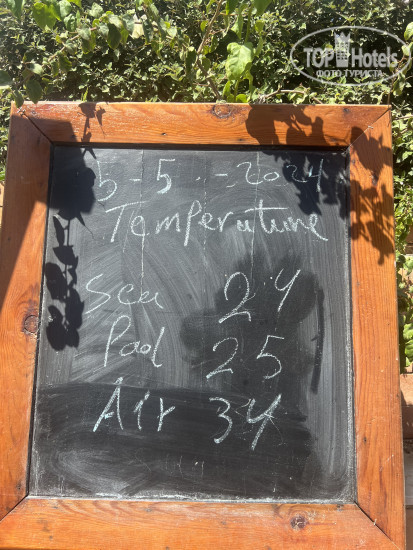 TOPHotels
ФОТО ТУРИСТА
5-5-2024
Temperature
Sea 24
Pool 25
Air 34